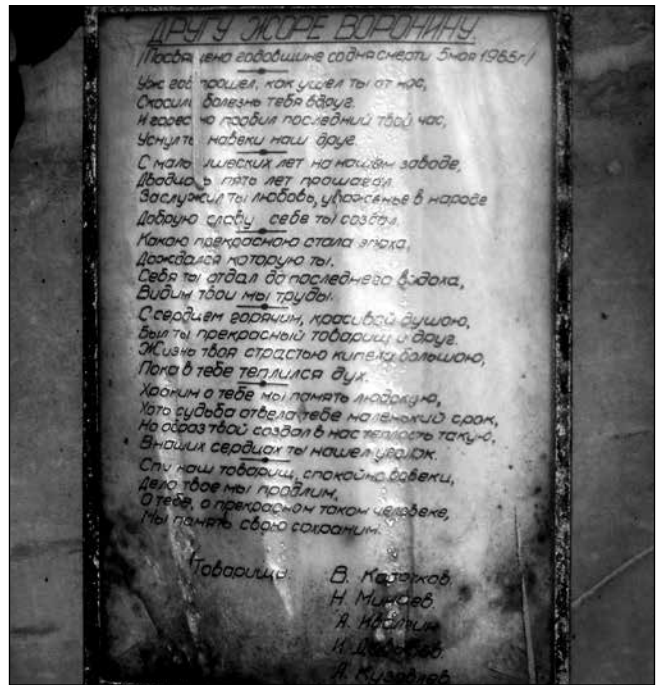 ДРУГУ ЖОРЕ ВОРОНИНУ.
/Посвящено годовщине со дня смерти 5 мая 1965 г/
Уж год прошел, как ушел ты от нас,
Скосила болезнь тебя вдруг.
И горестно пробил последний твой час,
Уснул ты навеки наш друг.
С мальчишеских лет на нашем заводе,
Двадцать пять лет прошагал.
Заслужил ты любовь, уваженье в народе
Добрую славу себе ты создал.
Какою прекрасною стала эпоха,
Дождался которую ты.
Себя ты отдал до последнего вздоха,
Видим твои мы труды.
С сердцем горячим, красивой душою,
Был ты прекрасный товарищ и друг.
Жизнь твоя страстью кипела большою,
Пока в тебе теплился дух.
Храним о тебе мы память людскую,
Хоть судьба отвела тебе маленький срок,
Но образ твой создал в нас теплость такую,
В наших сердцах ты нашел уголок.
Спи наш товарищ, спокойно вовеки,
Дело твое мы продлим,
О тебе, о прекрасном таком человеке,
Мы память свою сохраним.
Товарищи
В.
Н. Минаев.
А.
А. Кузовлев